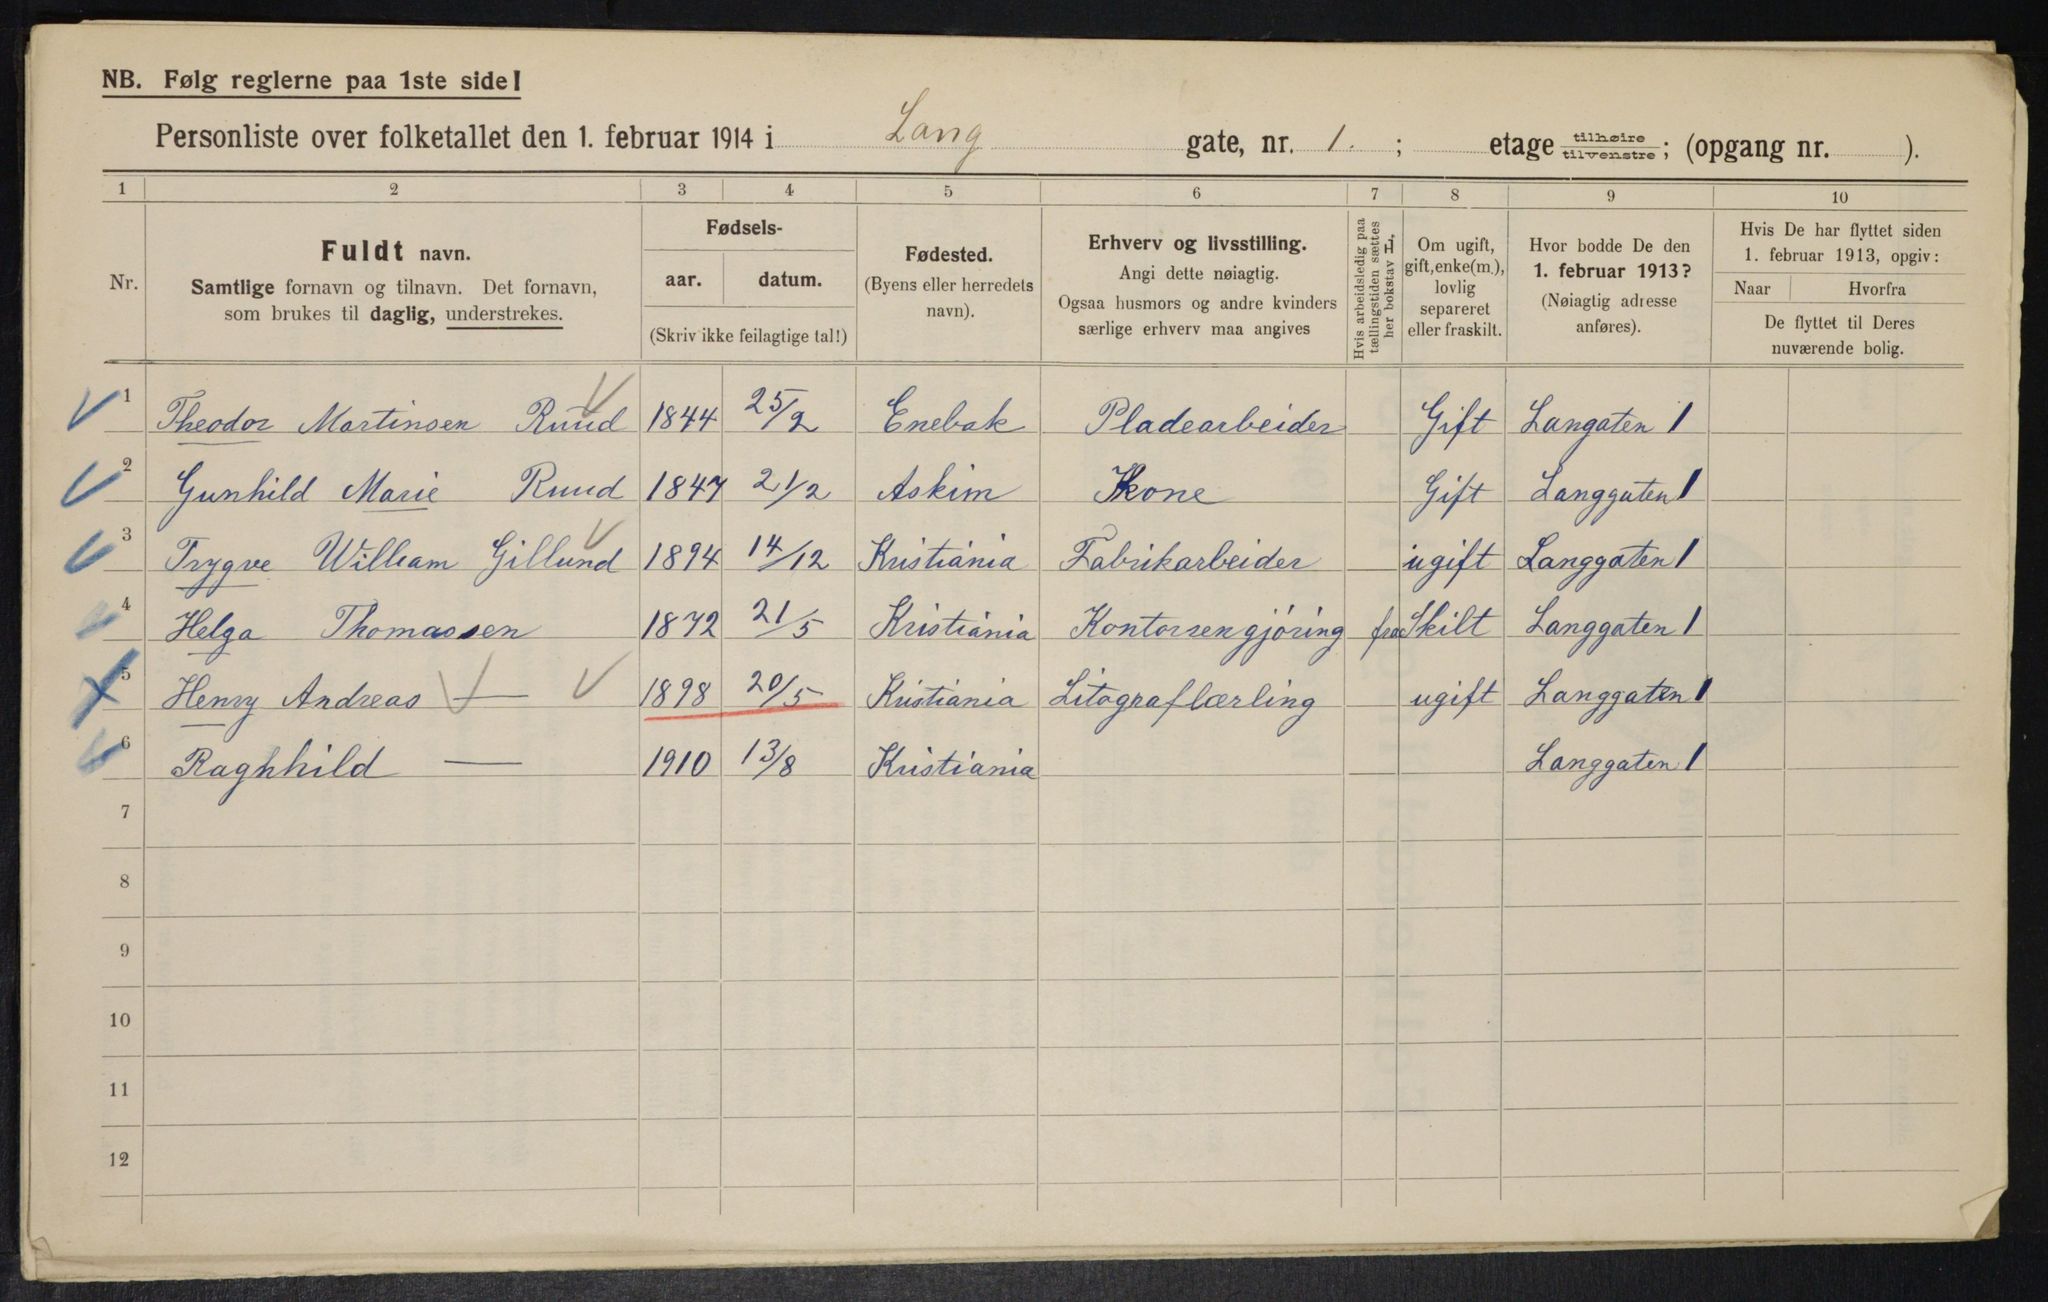 NB. Følg reglerne paa 1ste side!
Personliste over folketallet den 1. februar 1914 i Lang gate, nr. 1. ; etage tilhøire tilvenstre; (opgang nr. ).
1 2 3 4 5 6 7 8 9 10
Nr.
Fuldt navn.
Samtlige fornavn og tilnavn. Det fornavn,
som brukes til daglig, understrekes.
Fødsels-
aar. datum.
(Skriv ikke feilagtige tal!)
Fødested.
(Byens eller herredets
navn).
Erhverv og livsstilling.
Angi dette nøiagtig.
Ogsaa husmors og andre kvinders
særlige erhverv maa angives
Hvis arbeidsledig paa
tællingstiden sættes
her bokstav L.
Om ugift,
gift, enke(m.),
lovlig
separeret
eller fraskilt.
Hvor bodde De den
1. februar 1913?
(Nøiagtig adresse
anføres).
Hvis De har flyttet siden
1. februar 1913, opgiv:
Naar Hvorfra
De flyttet til Deres
nuværende bolig.
1 Theodor Martinsen Ruud 1844 25/2 Enebak Pladearbeider Gift Langaten 1
2 Gunhild Marie Ruud 1847 21/2 Askim Kone Gift Langgaten 1
3 Trygve William Gillund 1894 14/12 Kristiania Fabrikarbeider ugift Langgaten 1
4 Helga Thomassen 1872 21/5 Kristiania Kontorrengjöring fraSkilt Langgaten 1
5 Henry Andreas — 1898 20/5 Kristiania Litograflærling ugift Langgaten 1
6 Raghhild — 1910 13/8 Kristiania Langgaten 1
7
8
9
10
11
12